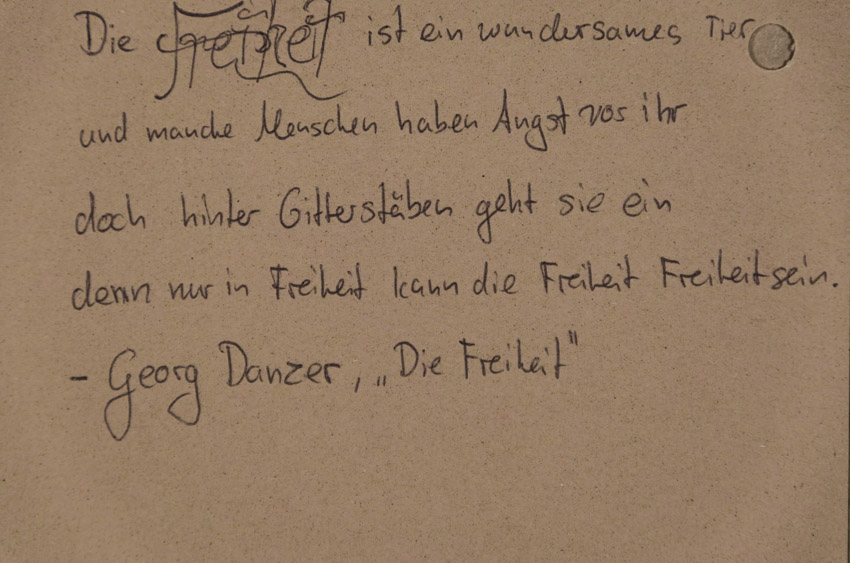 Die Freiheit ist ein wundersames Tier
und manche Menschen haben Angst vor ihr
doch hinter Gitterstäben geht sie ein
denn nur in Freiheit kann die Freiheit Freiheit sein.
- Georg Danzer, „Die Freiheit"